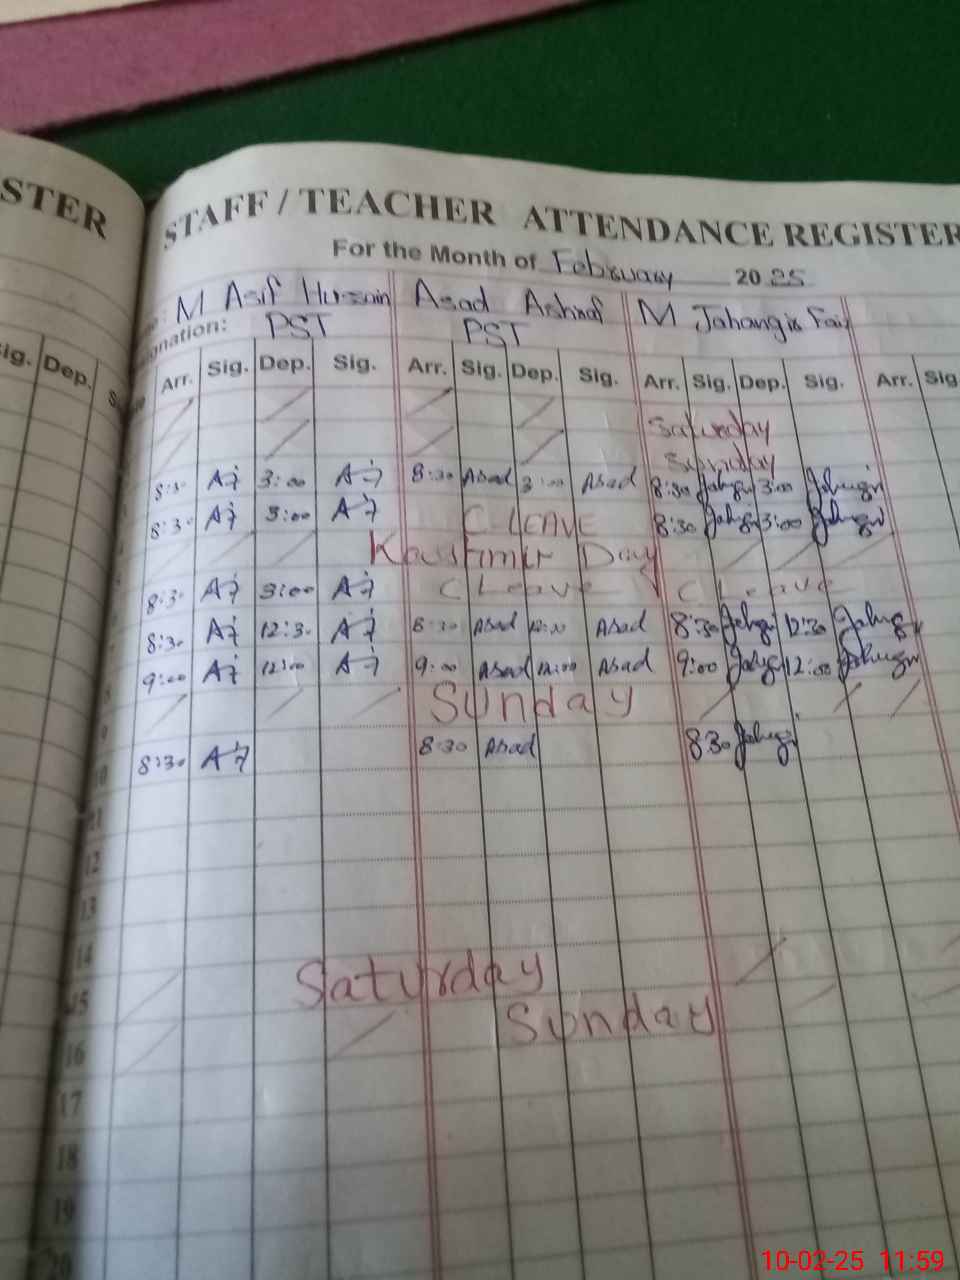 STER
STAFF / TEACHER ATTENDANCE REGISTER
For the Month of February 2025
M Asif Hussain Asad Ashraf M Jahangir
PST PST
Sig. Dep. Arr. Sig. Dep. Sig. Arr. Sig. Dep. Sig. Arr. Sig. Dep. Sig. Arr. Sig
Saturday
Sunday
8:30 3:00 8:30 Asad 3:00 Asad 8:30 3:00
8:30 3:00 C LEAVE 8:30 3:00
Kashmir Day
8:30 3:00 C Leave C Leave
8:30 12:30 8:30 Asad 12:30 Asad 8:30 12:30
9:00 12:00 9:00 Asad 12:00 Asad 9:00 12:00
9 Sunday
10 8:30 8:30 Asad 8:30
11
12
13
14
15 Saturday
16 Sunday
17
18
19
20
10-02-25 11:59